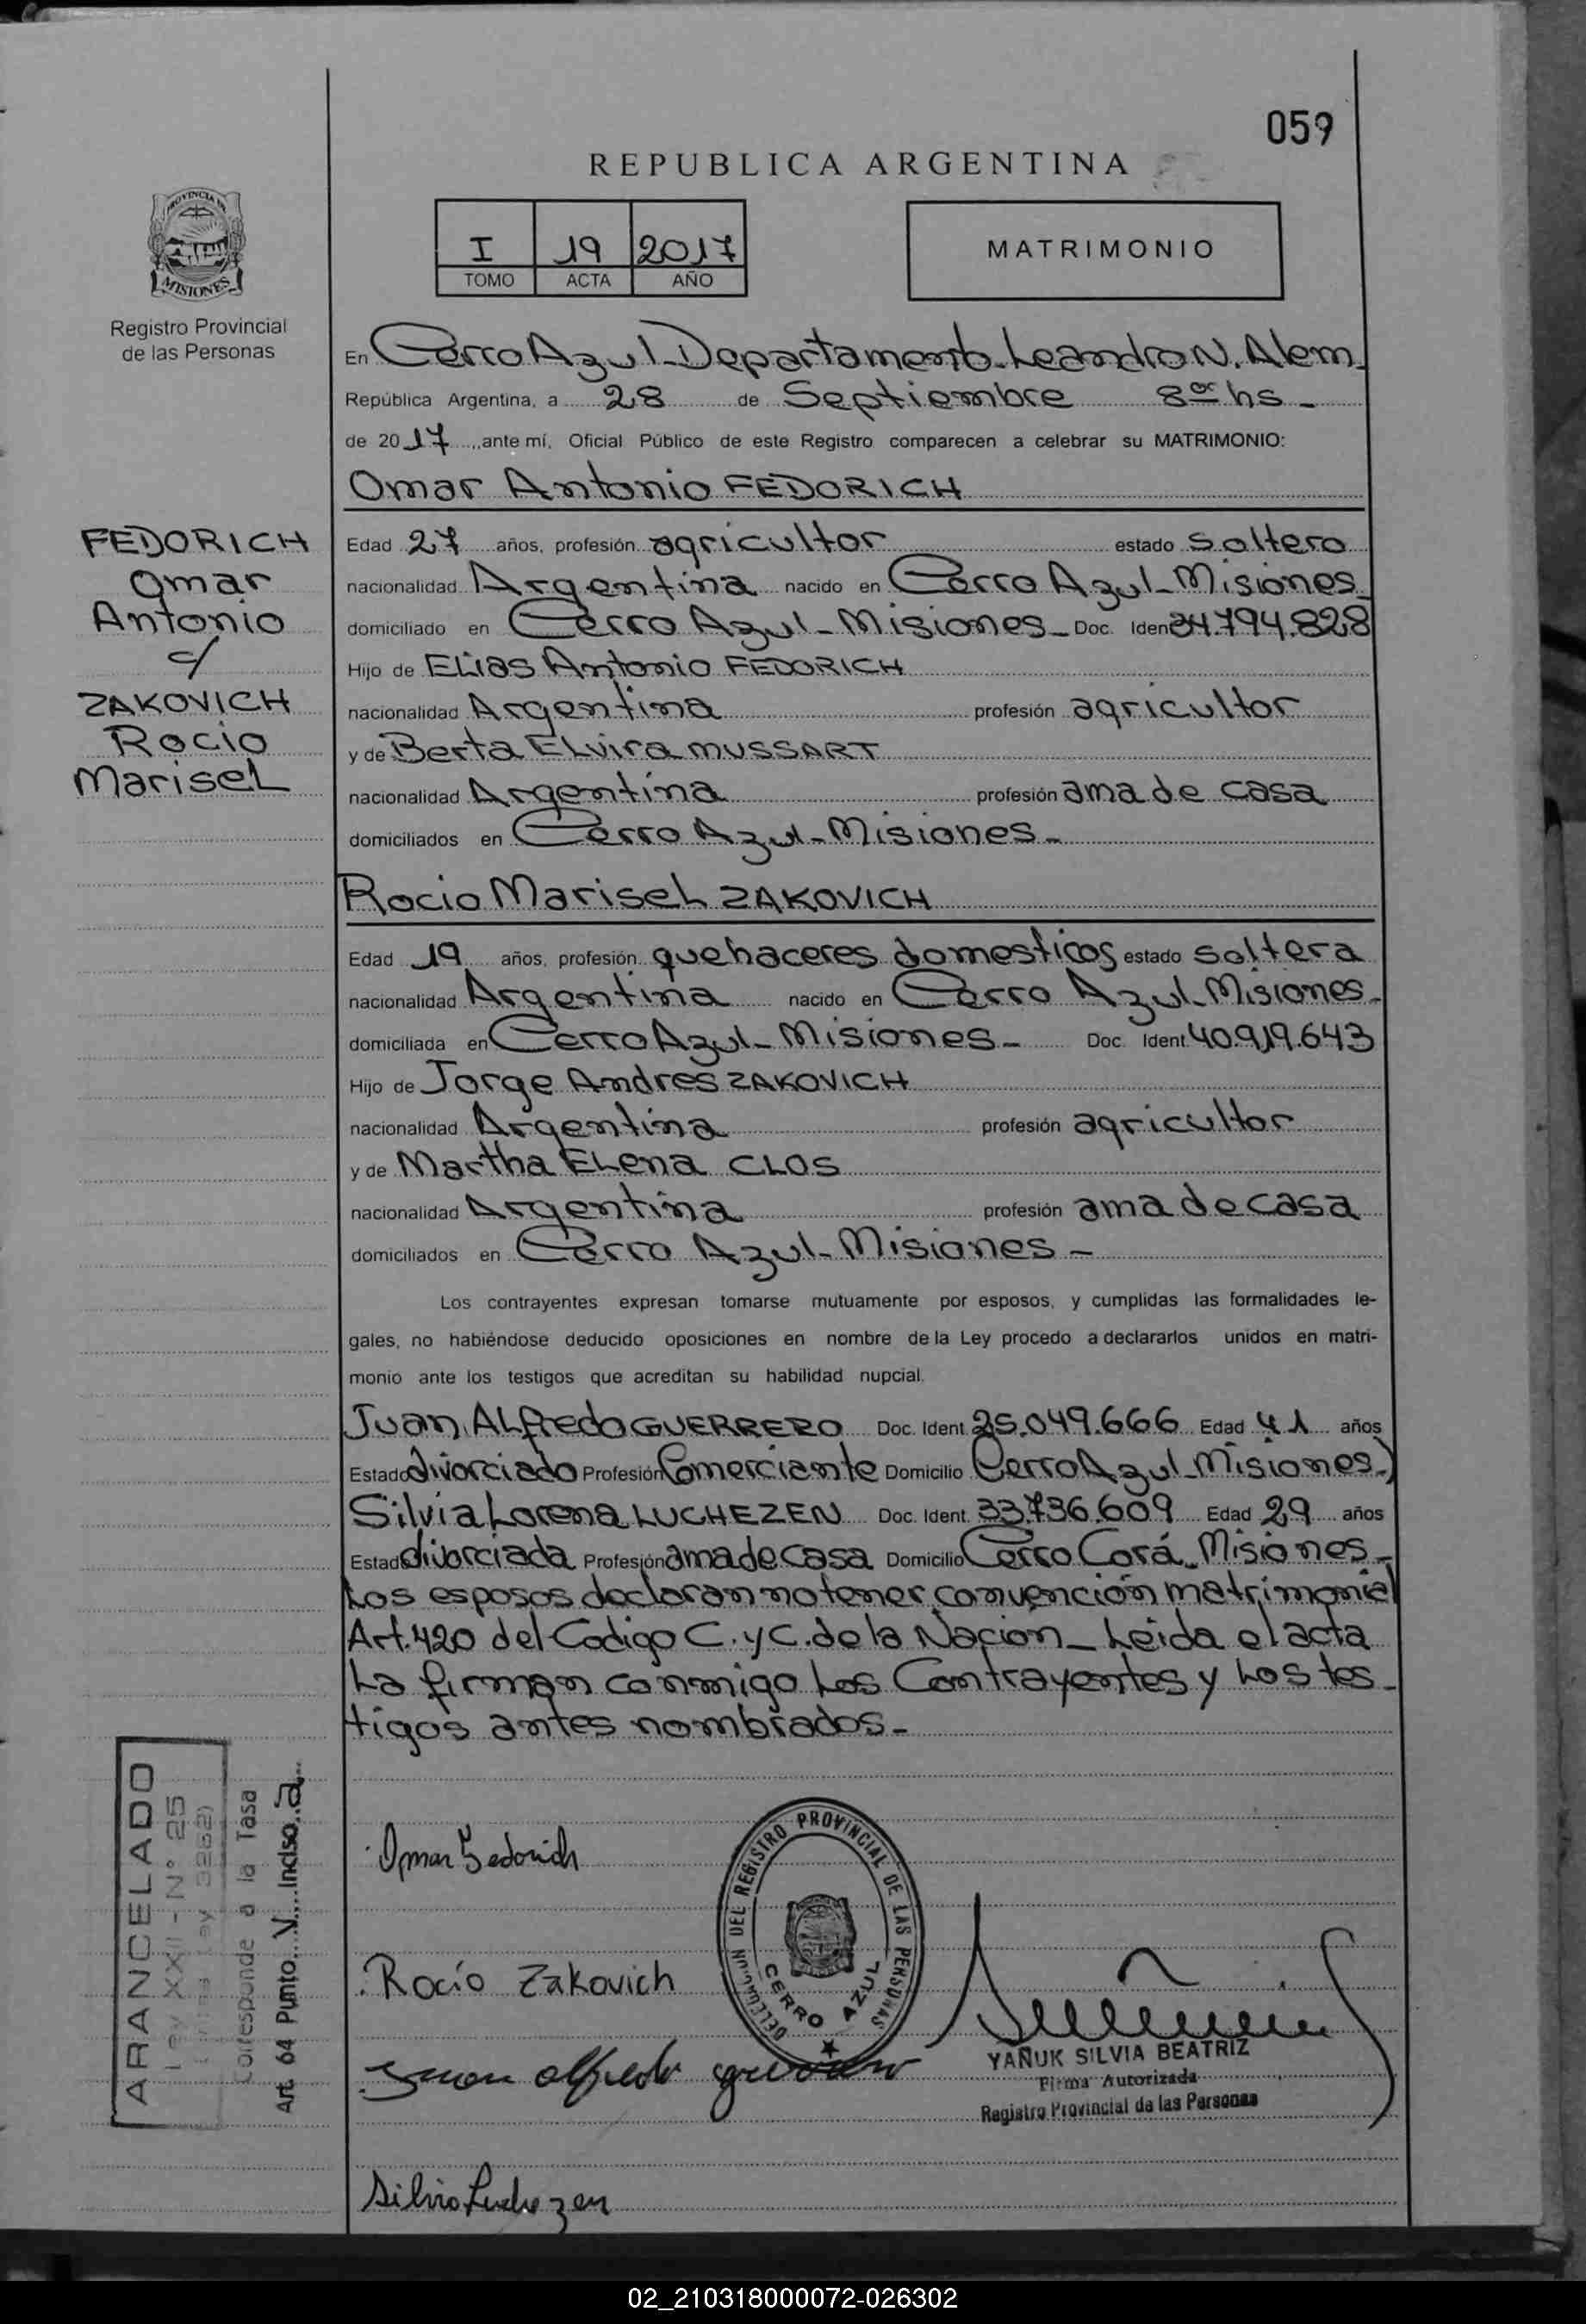 059
REPUBLICA ARGENTINA
PROVINCIA DE
MISIONES
Registro Provincial
de las Personas
I 19 2017
TOMO ACTA AÑO
MATRIMONIO
En Cerro Azul - Departamento Leandro N. Alem
República Argentina, a 28 de Septiembre 8 oo hs -
de 2017, ante mí, Oficial Público de este Registro comparecen a celebrar su MATRIMONIO:
Omar Antonio FEDORICH
FEDORICH
Omar
Antonio
c/
ZAKOVICH
Rocio
Marisel
Edad 27 años, profesión agricultor estado soltero
nacionalidad Argentina nacido en Cerro Azul - Misiones
domiciliado en Cerro Azul - Misiones - Doc. Iden 34.794.828
Hijo de Elias Antonio FEDORICH
nacionalidad Argentina profesión agricultor
y de Berta Elvira MUSSART
nacionalidad Argentina profesión ama de casa
domiciliados en Cerro Azul - Misiones -
Rocio Marisel ZAKOVICH
Edad 19 años, profesión quehaceres domesticos estado soltera
nacionalidad Argentina nacido en Cerro Azul - Misiones -
domiciliada en Cerro Azul - Misiones - Doc. Ident 40.919.643
Hijo de Jorge Andres ZAKOVICH
nacionalidad Argentina profesión agricultor
y de Martha Elena CLOS
nacionalidad Argentina profesión ama de casa
domiciliados en Cerro Azul - Misiones -
Los contrayentes expresan tomarse mutuamente por esposos, y cumplidas las formalidades le-
gales, no habiéndose deducido oposiciones en nombre de la Ley procedo a declararlos unidos en matri-
monio ante los testigos que acreditan su habilidad nupcial.
Juan Alfredo GUERRERO Doc. Ident. 25.049.666 Edad 41 años
Estado divorciado Profesión Comerciante Domicilio Cerro Azul - Misiones -)
Silvia Lorena LUCHEZEN Doc. Ident. 33.736.609 Edad 29 años
Estado divorciada Profesión ama de casa Domicilio Cerro Corá - Misiones -
Los esposos declaran no tener convención matrimonial
Art. 420 del Codigo C. y C. de la Nacion - Leida el acta
La firman conmigo Los Contrayentes y Los tes-
tigos antes nombrados -
ARANCELADO
Ley XXII - N° 25
Ley 3262)
Corresponde a la Tasa
Art. 64 Punto V Inciso a
Omar Fedorich
DELEGACION DEL REGISTRO PROVINCIAL DE LAS PERSONAS
CERRO AZUL
Rocío Zakovich
Juan alfredo guerrero
YAÑUK SILVIA BEATRIZ
Firma Autorizada
Registro Provincial de las Personas
Silvia Luchezen
02_210318000072-026302